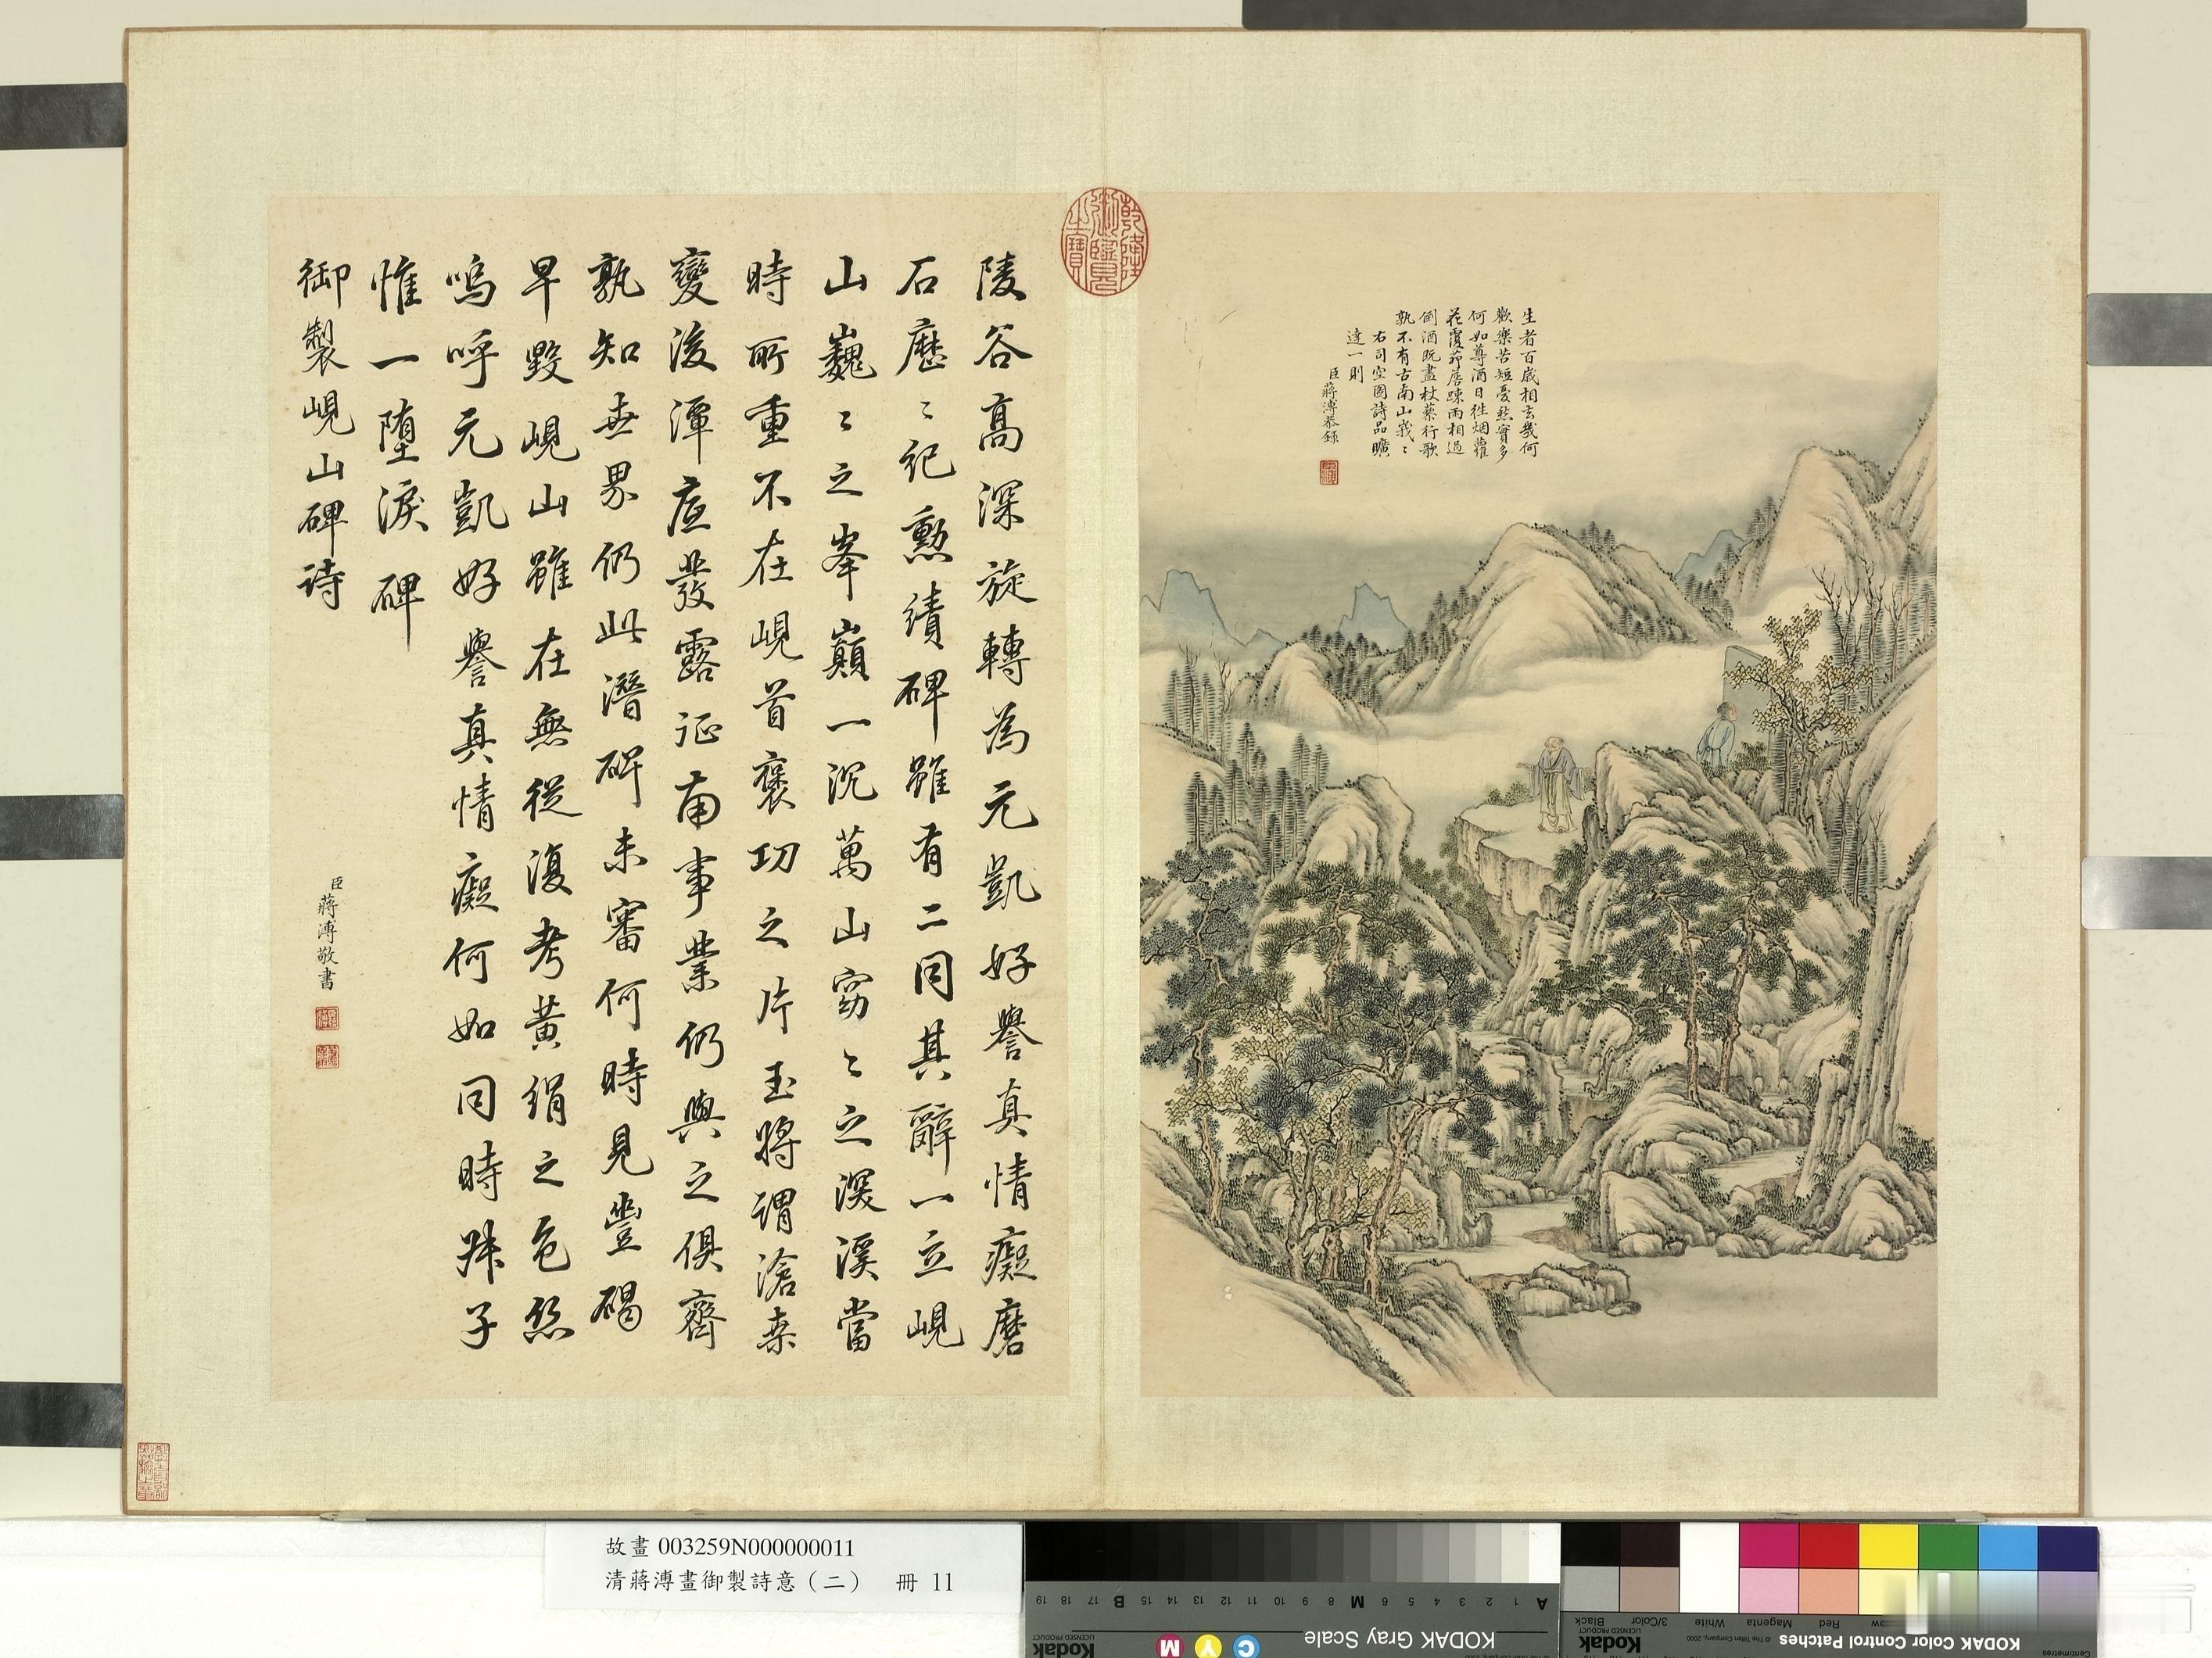 生者百歲相去幾何
歡樂苦短憂愁實多
何如尊酒日往烟蘿
花覆茆簷疎雨相過
倒酒既盡杖藜行歌
孰不有古南山峩〻
右司空圖詩品曠
達一則
臣蔣溥恭錄
乾隆御覽之寶
陵谷高深旋轉為元凱好譽真情癡磨
石歷〻紀勲績碑雖有二同其辭一立峴
山巍〻之峯巔一沉萬山窈〻之深溪當
時所重不在峴首褒功之片玉將謂滄桑
變後潭底發露証南事業仍與之俱齊
孰知世界仍此潛碑未審何時見豐碣
早毀峴山雖在無從復考黃絹之色絲
嗚呼元凱好譽真情癡何如同時叔子
惟一墮淚碑
御製峴山碑詩
臣蔣溥敬書
故畫 003259N000000011
清蔣溥畫御製詩意（二） 冊 11
KODAK Gray Scale
Kodak
LICENSED PRODUCT
C Y M
A 1 2 3 4 5 6 M 8 9 10 11 12 13 14 15 B 17 18 19
KODAK Color Control Patches
Kodak
LICENSED PRODUCT
© The Tiffen Company, 2000
Centimetres
Red Magenta White 3/Color Black